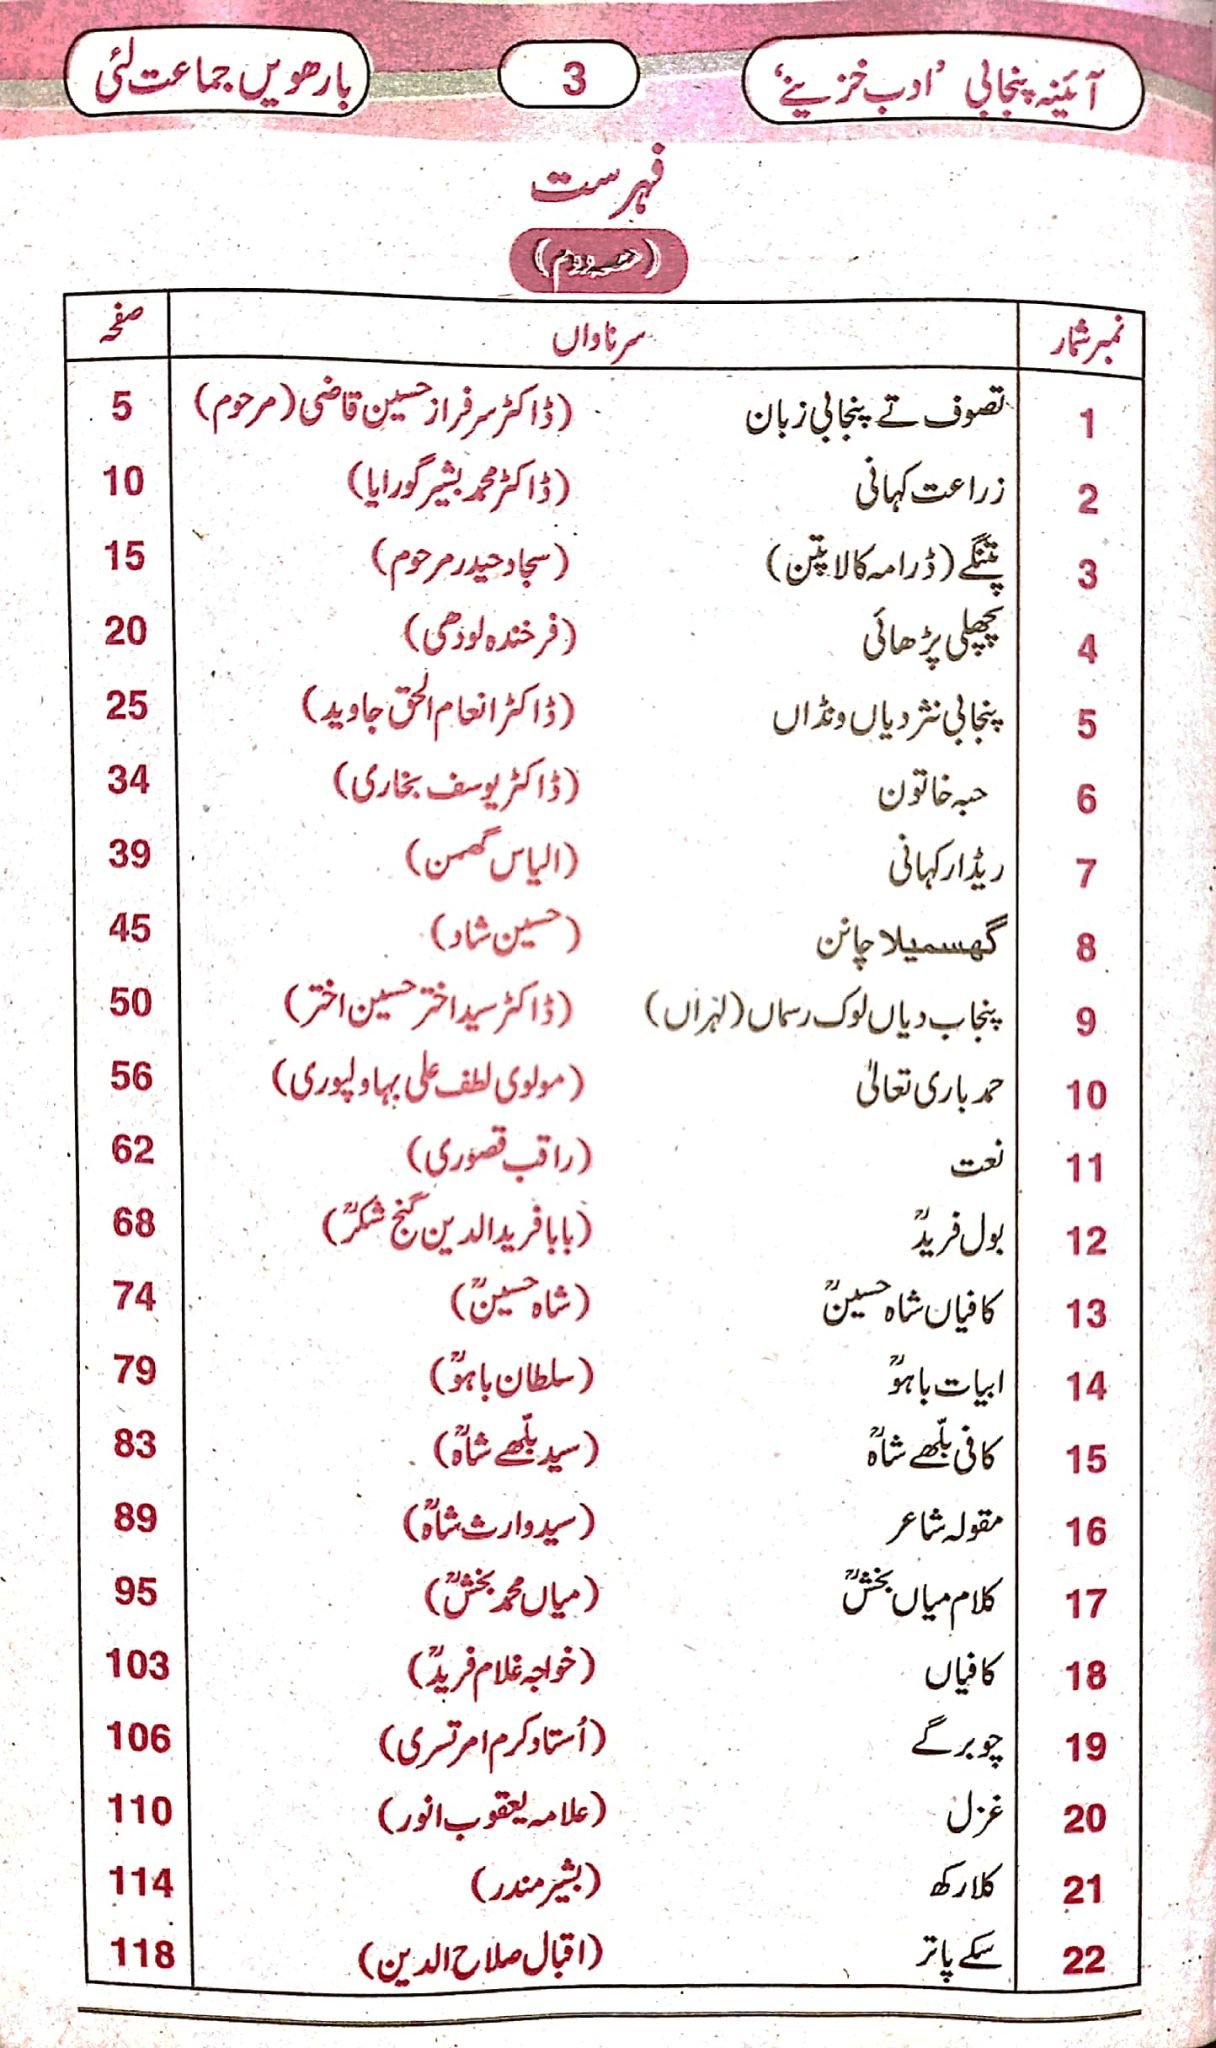 آئینہ پنجابی ’ادب خزینے‘ 3 بارھویں جماعت لئی
فہرست
(حصہ دوم)
نمبر شمار سرناواں صفحہ
1 تصوف تے پنجابی زبان (ڈاکٹر سرفراز حسین قاضی (مرحوم) 5
2 زراعت کہانی (ڈاکٹر محمد بشیر گورایا) 10
3 پتنگے (ڈرامہ کالا پتن) (سجاد حیدر مرحوم) 15
4 پچھلی پڑھائی (فرخندہ لودھی) 20
5 پنجابی نثر دیاں ونڈاں (ڈاکٹر انعام الحق جاوید) 25
6 حبہ خاتون (ڈاکٹر یوسف بخاری) 34
7 ریڈار کہانی (الیاس گھمن) 39
8 گھسمیلا چانن (حسین شاد) 45
9 پنجاب دیاں لوک رسماں (لہراں) (ڈاکٹر سید اختر حسین اختر) 50
10 حمد باری تعالیٰ (مولوی لطف علی بہاولپوری) 56
11 نعت (راقب قصوری) 62
12 بول فریدؒ (بابا فرید الدین گنج شکرؒ) 68
13 کافیاں شاہ حسینؒ (شاہ حسینؒ) 74
14 ابیات باہوؒ (سلطان باہوؒ) 79
15 کافی بلّھے شاہؒ (سید بلّھے شاہؒ) 83
16 مقولہ شاعر (سید وارث شاہؒ) 89
17 کلام میاں بخشؒ (میاں محمد بخشؒ) 95
18 کافیاں (خواجہ غلام فریدؒ) 103
19 چوبرگے (اُستاد کرم امرتسری) 106
20 غزل (علامہ یعقوب انور) 110
21 کلا رکھ (بشیر منذر) 114
22 سکے پاتر (اقبال صلاح الدین) 118